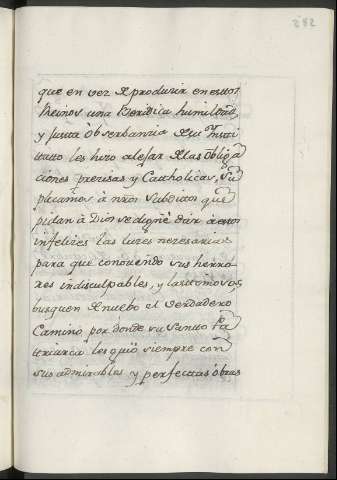 282
que en vez de produzir en estos
Reinos una Heroica humildad,
y justa observanzia de su Insti
tutto les hizo alejar de las obliga
ciones precisas y Catholicas, Su
plicamos à nr̃os subditos que
pidan à Dios se digne dar à estos
infelizes las luzes nezesarias
para que conoziendo sus herro
res indisculpables, y lastimosos,
busquen de nuebo el verdadero
Camino, por donde su Santo Pa
triarca les guiò siempre con
sus admirables y perfectas obras